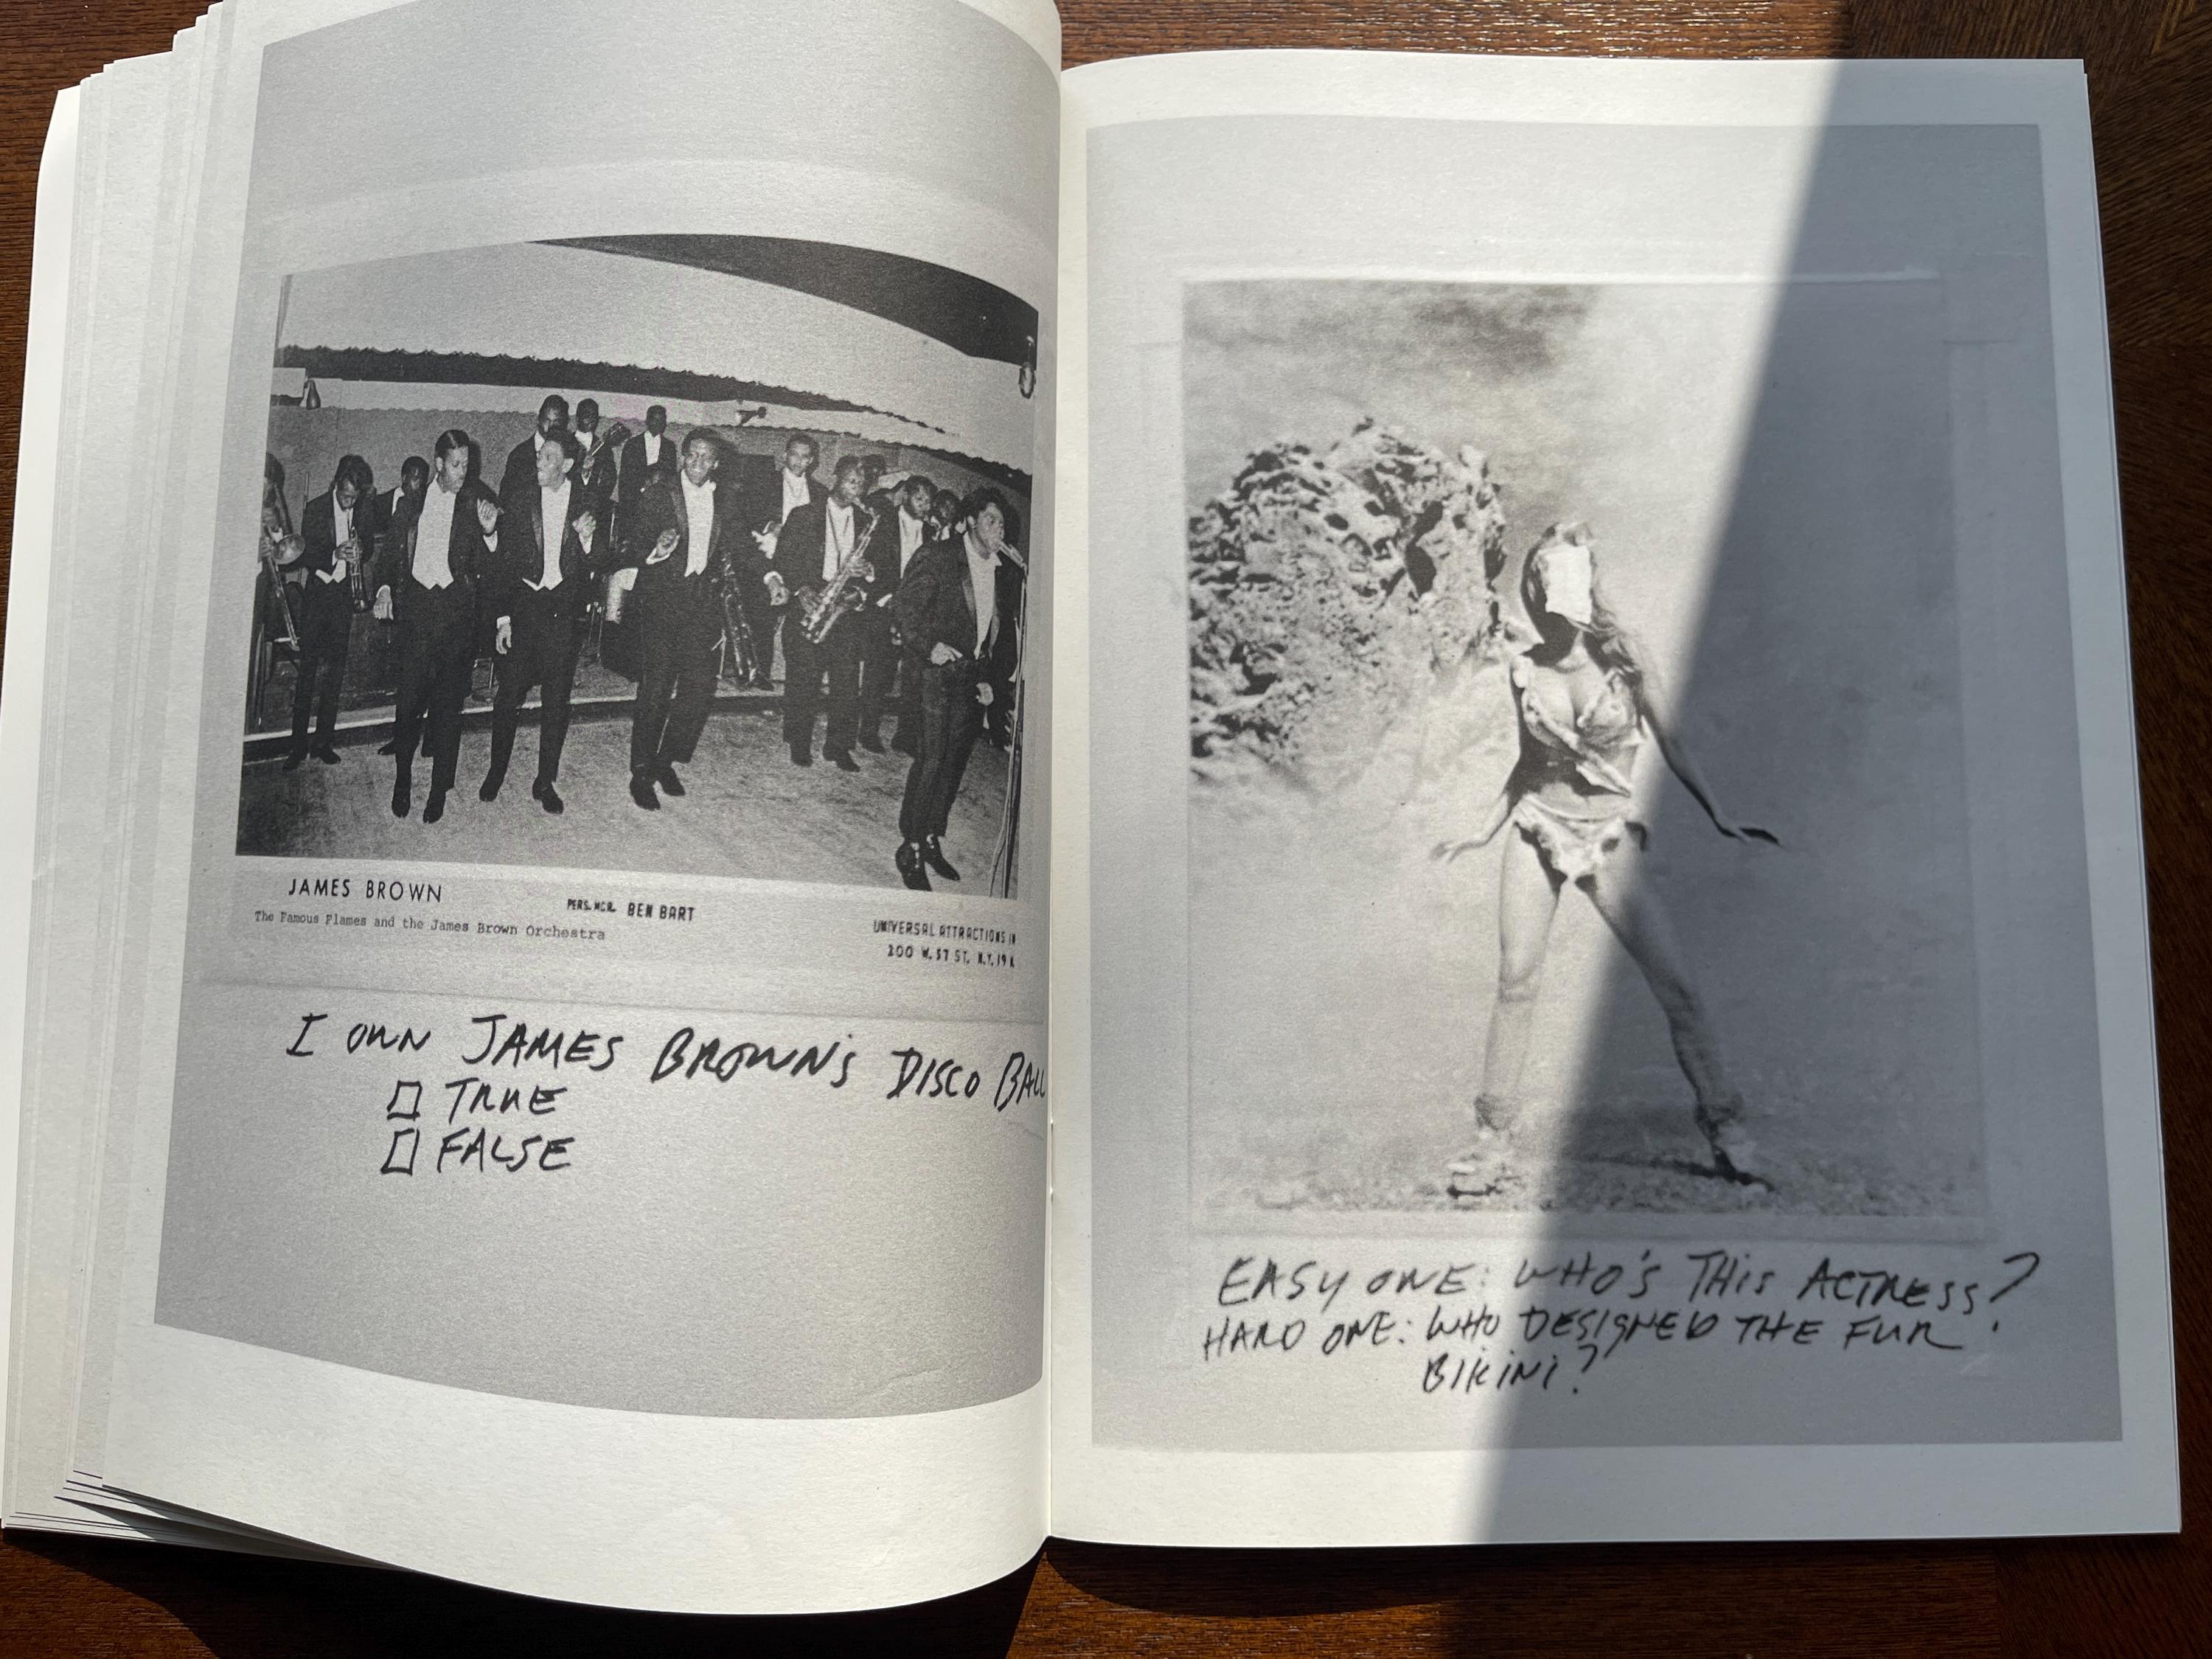 JAMES BROWN
The Famous Flames and the James Brown Orchestra
PERS. MGR. BEN BART
UNIVERSAL ATTRACTIONS IN
200 W. 57 ST. N.Y. 19 N.
I OWN JAMES BROWN'S DISCO BALL
TRUE
FALSE
EASY ONE: WHO'S THIS ACTRESS?
HARD ONE: WHO DESIGNED THE FUR
BIKINI?